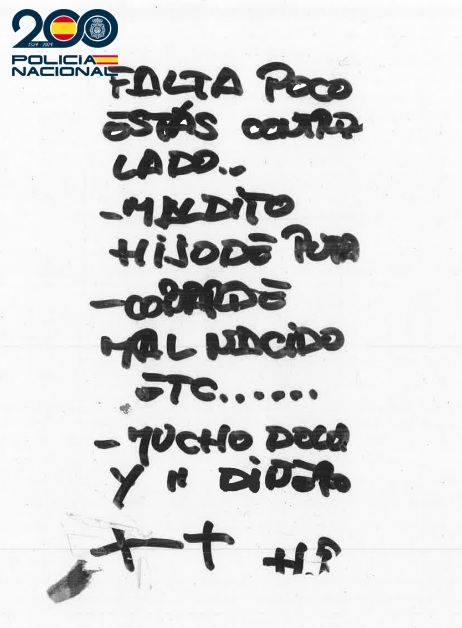 200
1824 2024
POLICIA
NACIONAL
FALTA POCO
ESTÁS CONTRO
LADO..
-MALDITO
HIJO DE PUTA
-COBARDE
MAL NACIDO
ETC.......
-MUCHO DOLOR
Y " DINERO